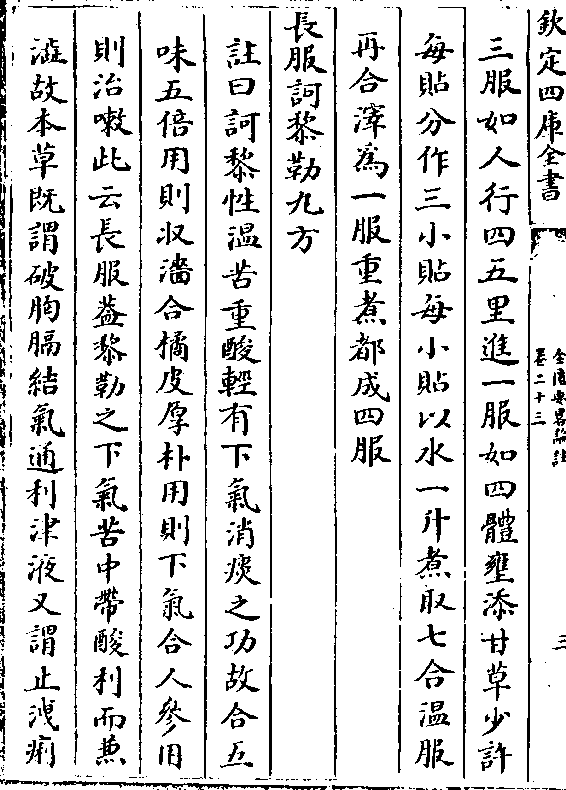 欽定四庫全書
金匱要畧論註
卷二十三
三
三服如人行四五里進一服如四體壅添甘草少許
每貼分作三小貼每小貼以水一升煮取七合温服
再合滓為一服重煮都成四服
長服訶黎勒丸方
註曰訶黎性温苦重酸輕有下氣消痰之功故合五
味五倍用則収濇合橘皮厚朴用則下氣合人參用
則治嗽此云長服葢黎勒之下氣苦中帶酸利而兼
澁故本草既謂破胸膈結氣通利津液又謂止洩痢